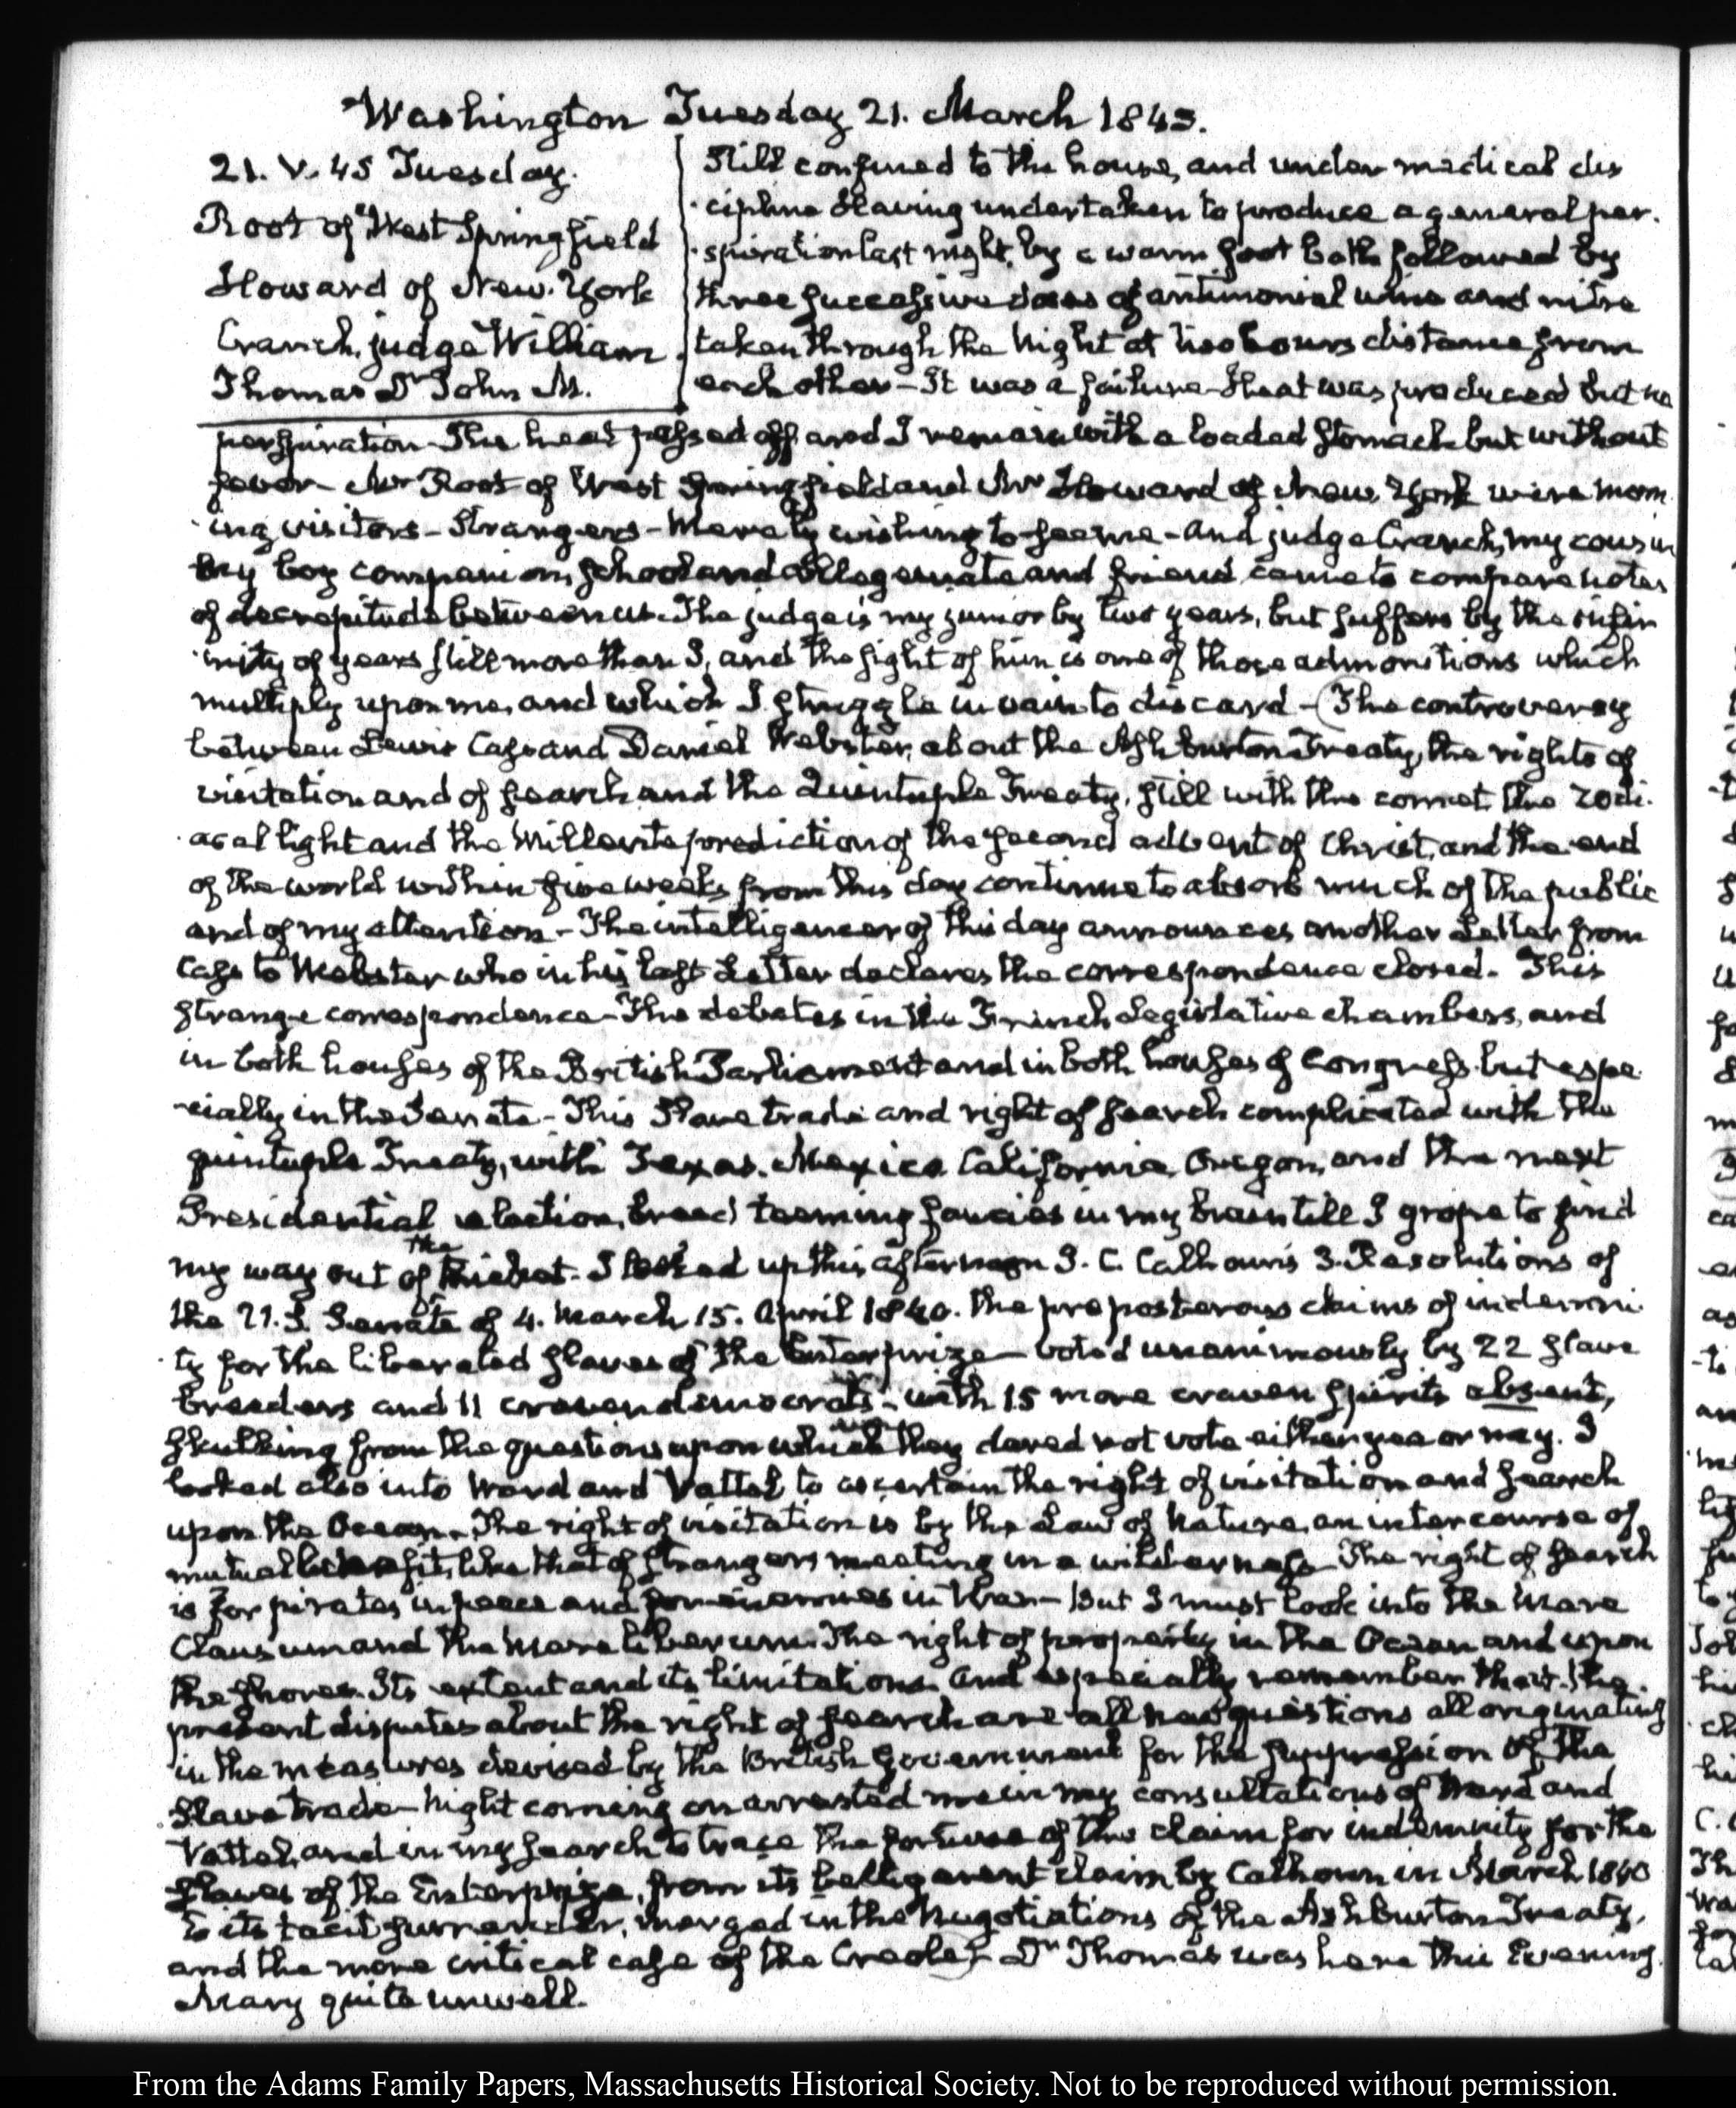 Washington Tuesday 21. March 1843.
21. V. 45 Tuesday.
Root of West Springfield
Howard of New-York
Cranch, judge William
Thomas Dr John M.
Still confined to the house, and under medical dis
-cipline Having undertaken to produce a general per-
-spiration last night, by a warm foot bath followed by
three successive doses of antimonial wine and nitre
taken through the Night at two hours distance from
each other - It was a failure - Heat was produced but no
perspiration - The heat passed off and I remain with a loaded stomach but without
fever - Mr Root of West Springfield and Mr Howard of New-York were morn
-ing visitors - Strangers - Merely wishing to see me - and judge Cranch, my cousin
my boy companion, school and college mate and friend came to compare notes
of decrepitude between us. The judge is my junior by two years, but suffers by the infir
-mity of years still more than I, and the sight of him is one of those admonitions which
multiply upon me, and which I struggle in vain to discard - The controversy
between Lewis Cass and Daniel Webster, about the Ashburton Treaty, the rights of
visitation and of search and the Quintuple Treaty, still with the comet, the zodi-
-acal light and the Millerite prediction of the second advent of Christ, and the end
of the world within five weeks from this day continue to absorb much of the public
and of my attention - The intelligencer of this day announces another Letter from
Cass to Webster who in his last Letter declares the correspondence closed. This
strange correspondence - The debates in the French Legislative chambers, and
in both houses of the British Parliament and in both houses of Congress but espe
-cially in the Senate - This Slave trade and right of search complicated with the
quintuple Treaty, with Texas, Mexico California, Oregon, and the next
Presidential election, breed teeming fancies in my brain till I grope to find
my way out of the thicket. I looked up this afternoon J. C. Calhoun's 3. Resolutions of
the U.S. Senate of 4. March 15. April 1840. The preposterous claims of indemni-
-ty for the liberated slaves of the Enterprize - voted unanimously by 22 slave
breeders and 11 craven democrats - with 15 more craven spirits absent,
skulking from the questions upon which they dared not vote either yea or nay. I
looked also into Ward and Vattel to ascertain the right of visitation and search
upon the Ocean. The right of visitation is by the Law of Nature, an intercourse of
mutual benefit, like that of strangers meeting in a wilderness The right of search
is for pirates in peace and for enemies in War - But I must look into the Mare
Clausum and the Mare liberum. The right of property in the Ocean and upon
the shores. Its extent and its limitations. And especially remember that the
present disputes about the right of search are all new questions all originating
in the measures devised by the British Government for the suppression of the
Slave trade - Night coming on arrested me in my consultations of Ward and
Vattel, and in my search to trace the fortunes of the claim for indemnity for the
slaves of the Enterprize, from its belligerent claim by Calhoun in March 1840
to its tacit surrender, merged in the Negotiations of the Ashburton Treaty,
and the more critical case of the Creole - Dr Thomas was here this Evening
Mary quite unwell.
From the Adams Family Papers, Massachusetts Historical Society. Not to be reproduced without permission.